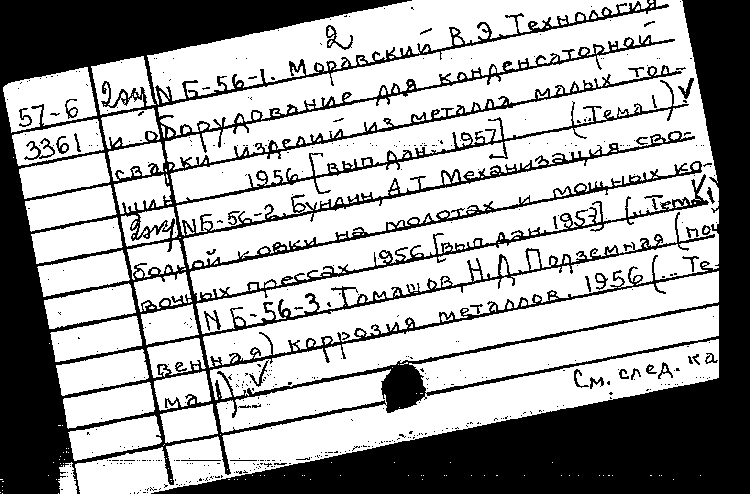 2
57-6
3361
2экз N Б-56-1. Моравский, В.Э. Технология
и оборудование для конденсаторной
сварки изделий из металла малых тол-
щин. 1956 [вып. дан.: 1957]. (..Тема 1) V
2экз N Б-56-2. Бундин, А.Т. Механизация сво-
бодной ковки на молотах и мощных ко-
вочных прессах 1956. [вып. дан. 1957] (..Тема 1)
N Б-56-3. Томашов, Н.Д. Подземная (поч
венная) коррозия металлов. 1956 (.. Те-
ма 1). V
См. след. ка